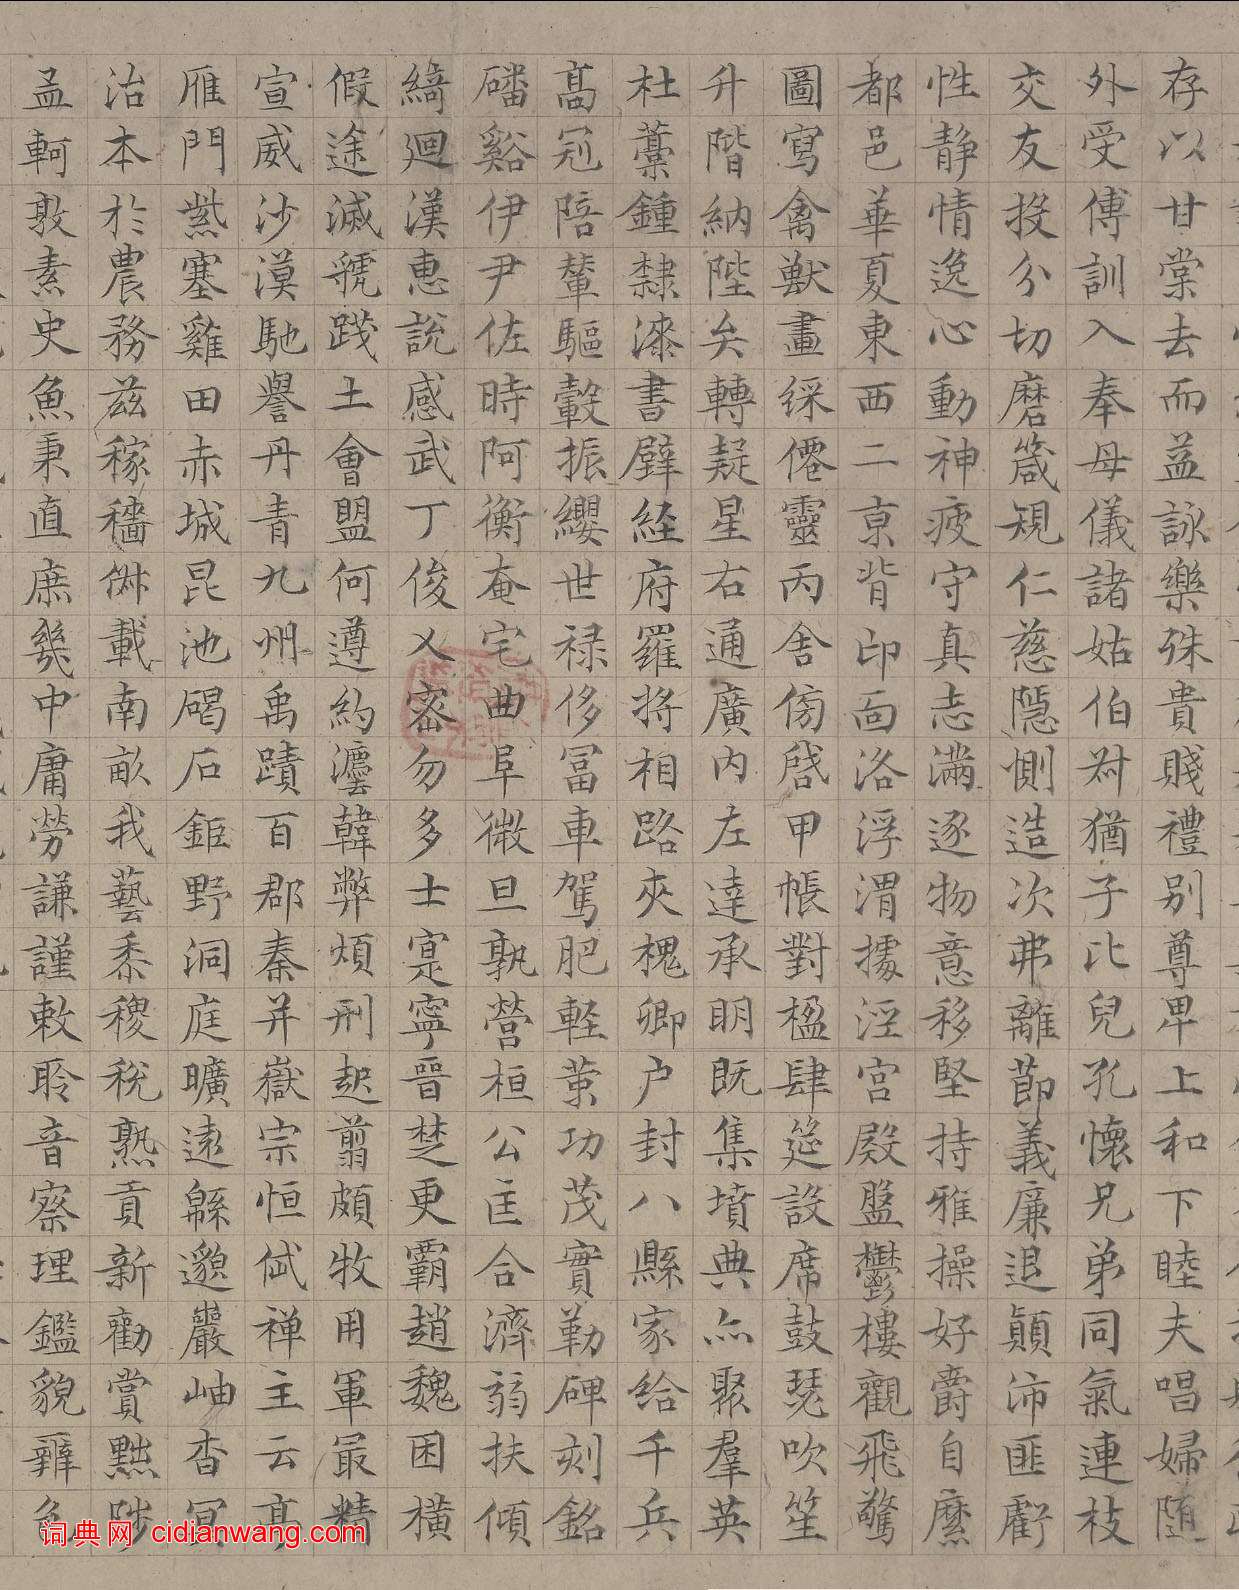 存以甘棠去而益詠樂殊貴賤禮别尊卑上和下睦夫唱婦随
外受傅訓入奉母儀諸姑伯叔猶子比兒孔懷兄弟同氣連枝
交友投分切磨箴規仁慈隱惻造次弗離節義廉退顛沛匪虧
性静情逸心動神疲守真志滿逐物意移堅持雅操好爵自縻
都邑華夏東西二京背邙面洛浮渭據涇宮殿盤鬱樓觀飛驚
圖寫禽獸畫綵僊靈丙舍傍啓甲帳對楹肆筵設席鼓瑟吹笙
升階納陛弁轉疑星右通廣内左達承明既集墳典亦聚羣英
杜藁鍾隸漆書壁経府羅将相路夾槐卿户封八縣家給千兵
髙冠陪輦驅轂振纓世禄侈冨車駕肥軽策功茂實勒碑刻銘
磻谿伊尹佐時阿衡奄宅曲阜微旦孰營桓公匡合濟弱扶傾
綺廻漢惠說感武丁俊乂密勿多士寔寧晉楚更霸趙魏困横
假途滅虢踐土會盟何遵約灋韓弊煩刑起翦頗牧用軍最精
宣威沙漠馳譽丹青九州禹蹟百郡秦并嶽宗恒岱禅主云亭
雁門紫塞雞田赤城昆池碣石鉅野洞庭曠逺緜邈巖岫杳冥
治本於農務兹稼穡俶載南畝我藝黍稷稅熟貢新勸賞黜陟
孟軻敦素史魚秉直庶幾中庸勞謙謹敕聆音察理鑑貌辨色
词典网 cidianwang.com